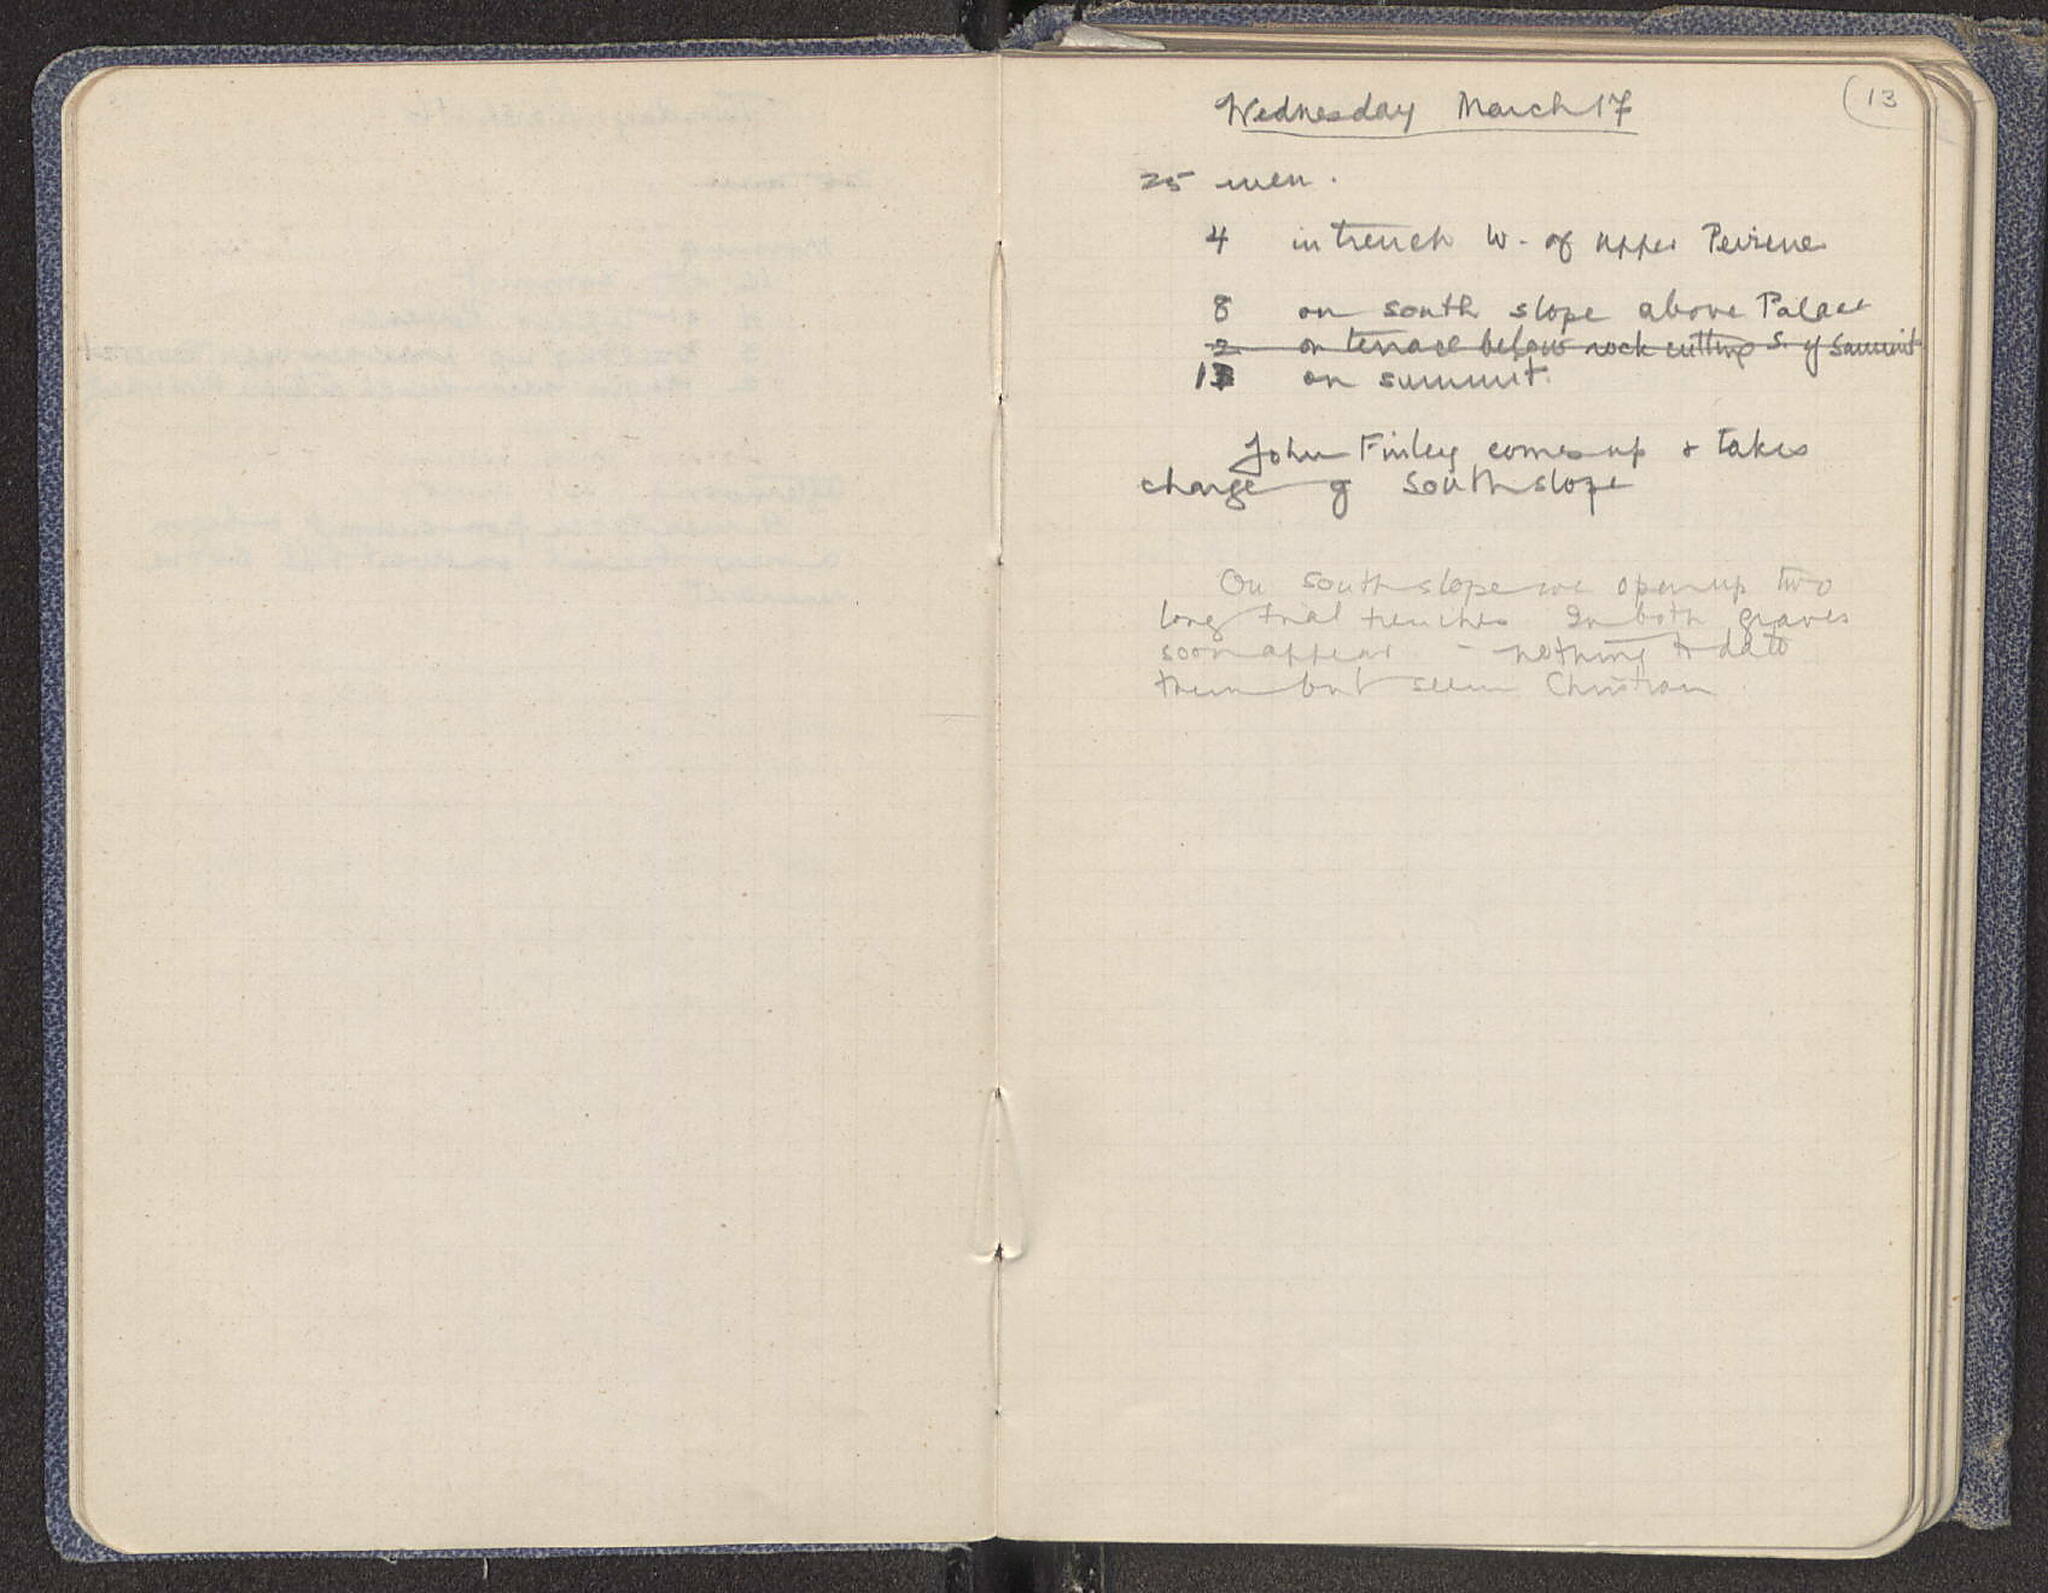 13
Wednesday March 17
25 men.
4 in trench W. of upper Peirene
8 on south slope above Palace
2 on terrace below rock cutting S. of summit
13 on summit.
John Finley comes up & takes
charge of South slope
On South slope we open up two
long trial trenches In both graves
soon appear - nothing to date
them but seem Christian